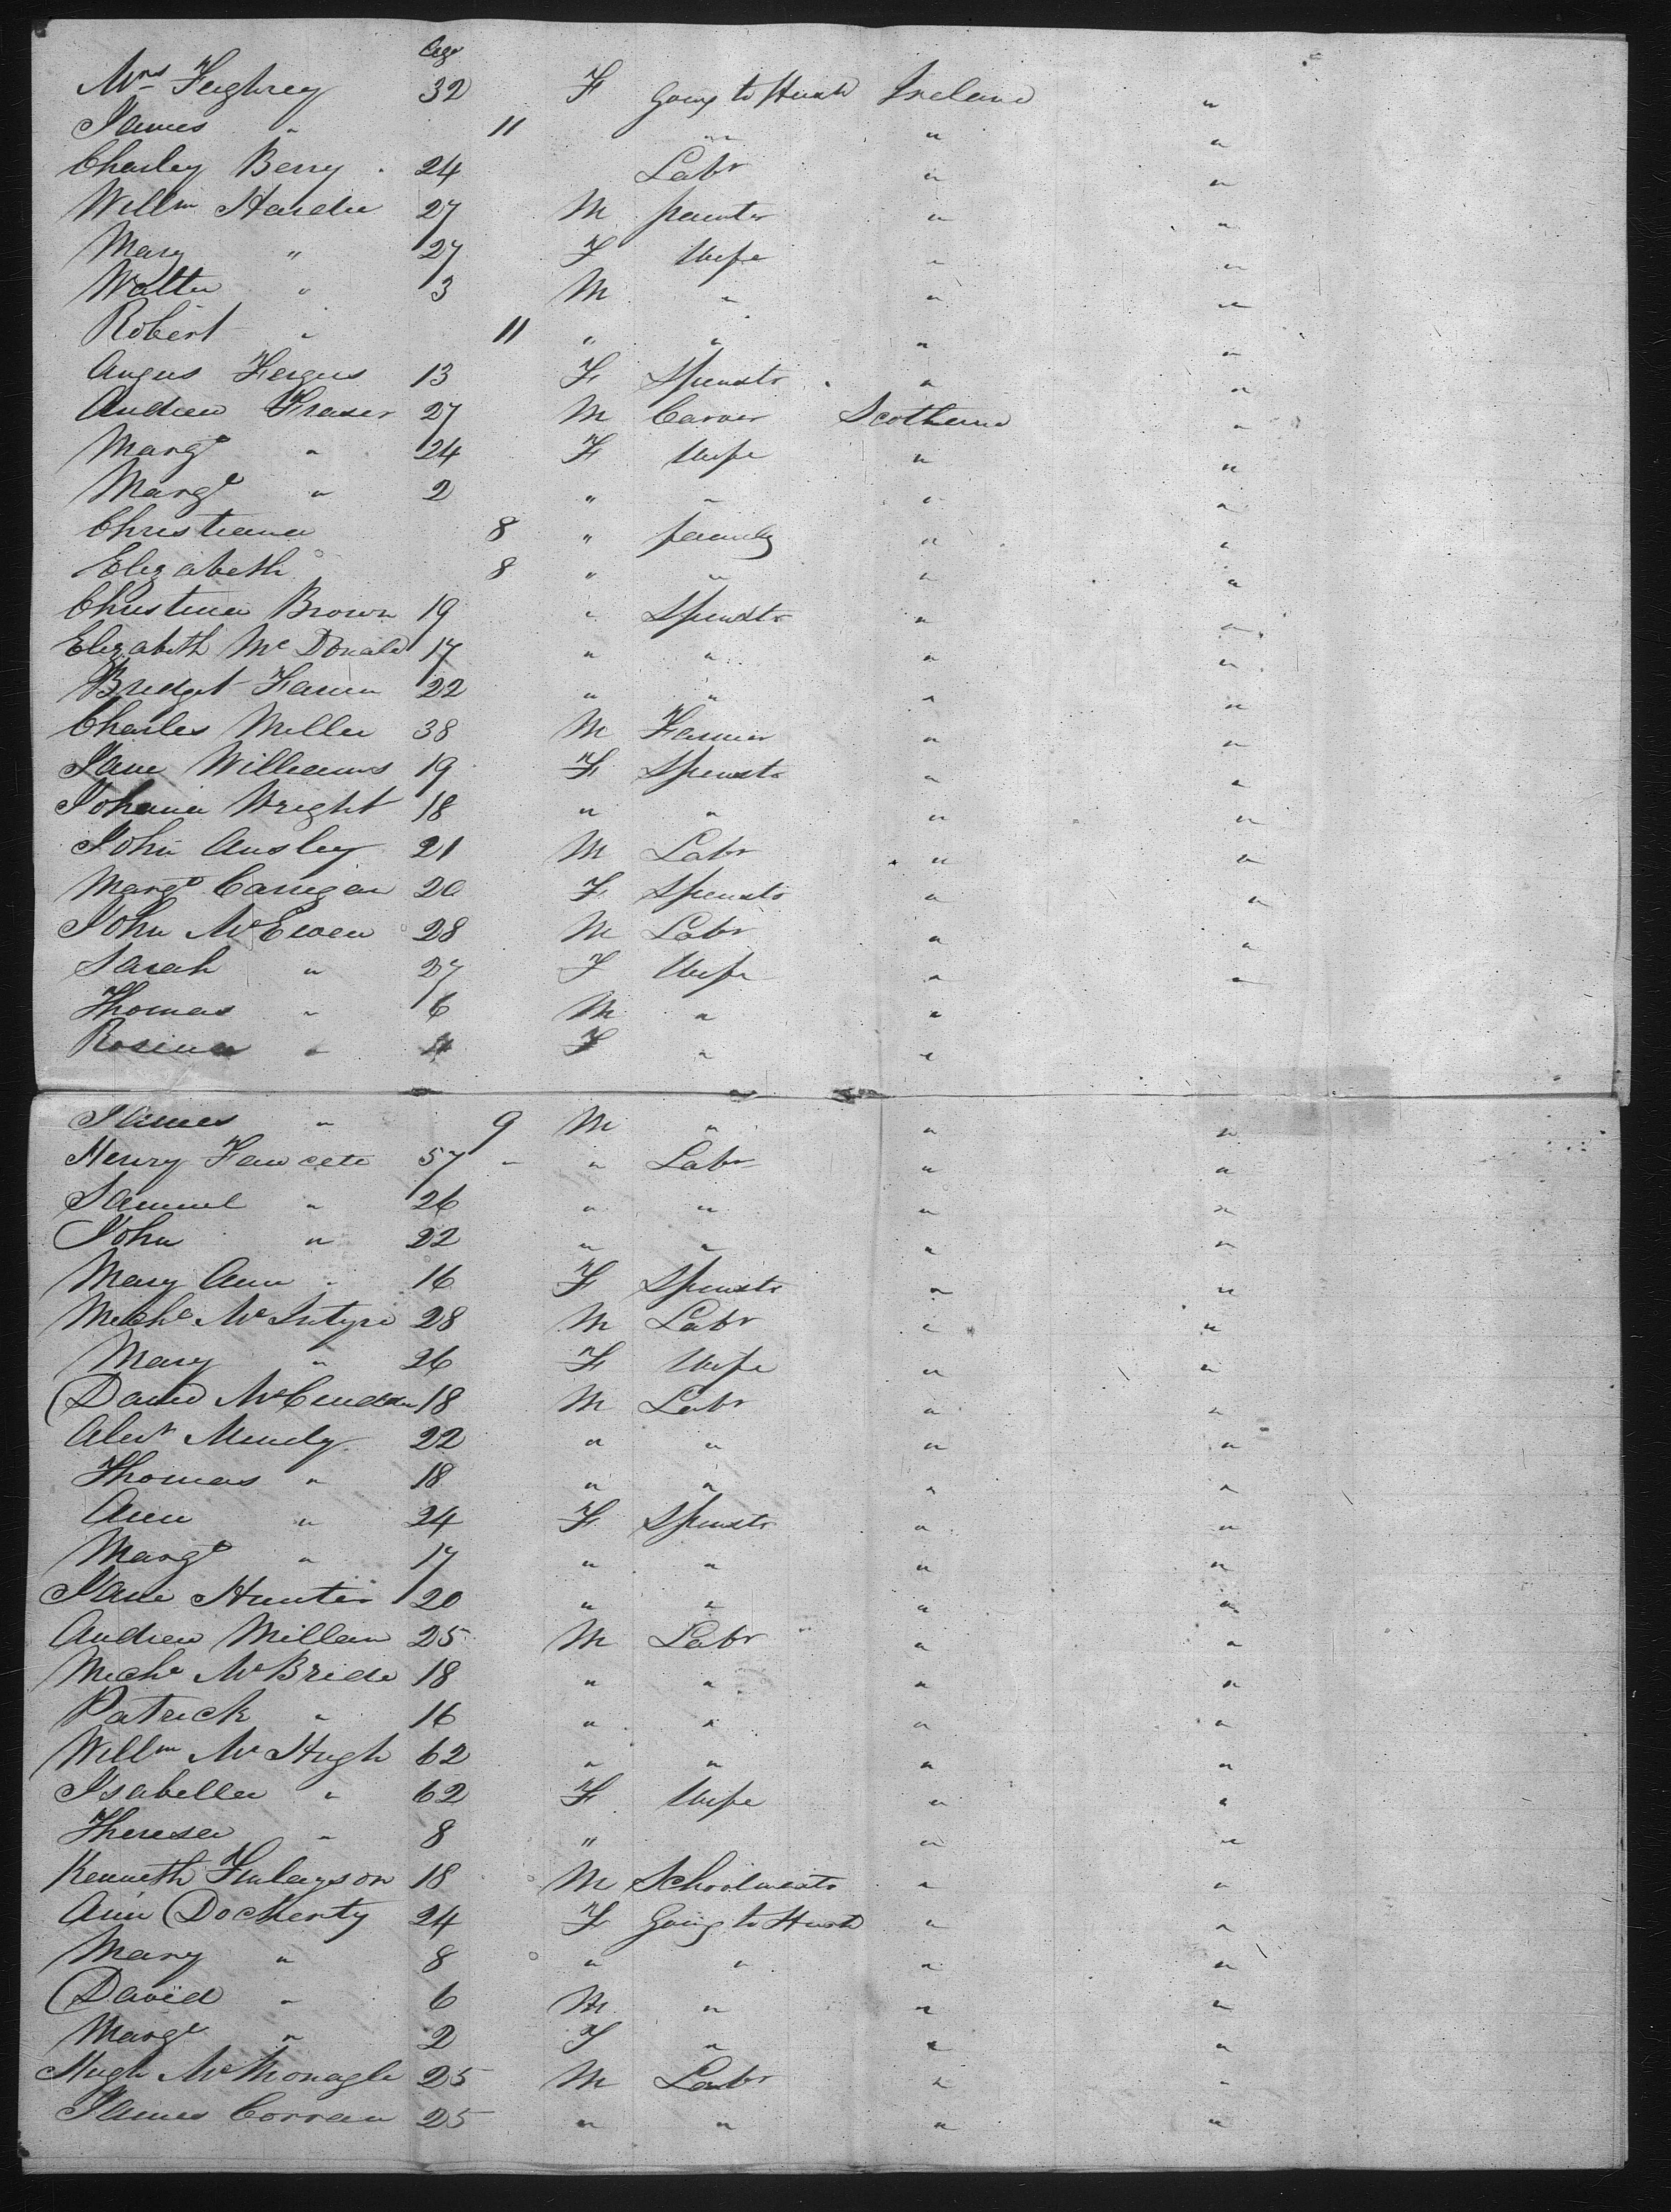 Age
Mrs Feghrey 32 F Going to Husb Ireland "
James " 11 " " "
Charley Berry 24 Labr " "
Willm Hardie 27 M painter " "
Mary " 27 F Wife " "
Walter " 3 M " " "
Robert " 11 " " " "
Angus Fergus 13 F Spinstr " "
Andrew Fraser 27 M Carver Scotland "
Margt " 24 F Wife " "
Margt " 2 " " " "
Christiana 8 " family " "
Elizabeth 8 " " " "
Christina Brown 19 " Spinstr " "
Elizabeth McDonald 17 " " " "
Bridget 22 " " " "
Charles Miller 38 M Farmer " "
Jane Williams 19 F Spinstr " "
Johana Wright 18 " " " "
John Ansley 21 M Labr " "
Margt Carrigan 20 F Spinstr " "
John McEwen 28 M Labr " "
Sarah " 27 F Wife " "
Thomas " 6 M " "
Rosina " 4 F " "
James " 9 M " " "
Henry Fawcett 57 " Labr " "
Samuel " 26 " " " "
John " 22 " " " "
Mary Ann " 16 F Spinstr " "
Michl McIntyre 28 M Labr " "
Mary " 26 F Wife " "
David 18 M Labr " "
Alexr 22 " " " "
Thomas " 18 " " " "
Ann " 24 F Spinstr " "
Margt " 17 " " " "
Jane Hunter 20 " " " "
Andrew Millan 25 M Labr " "
Michl McBride 18 " " " "
Patrick " 16 " " " "
Willm McHugh 62 " " " "
Isabella " 62 F Wife " "
Theresa " 8 " " "
Kenneth Finlayson 18 M Schoolmastr " "
Ann Docherty 24 F Going to Husb " "
Mary " 8 " " " "
David " 6 M " " "
Margt " 2 F " " "
Hugh McMonagle 25 M Labr " "
James Corran 25 " " " "